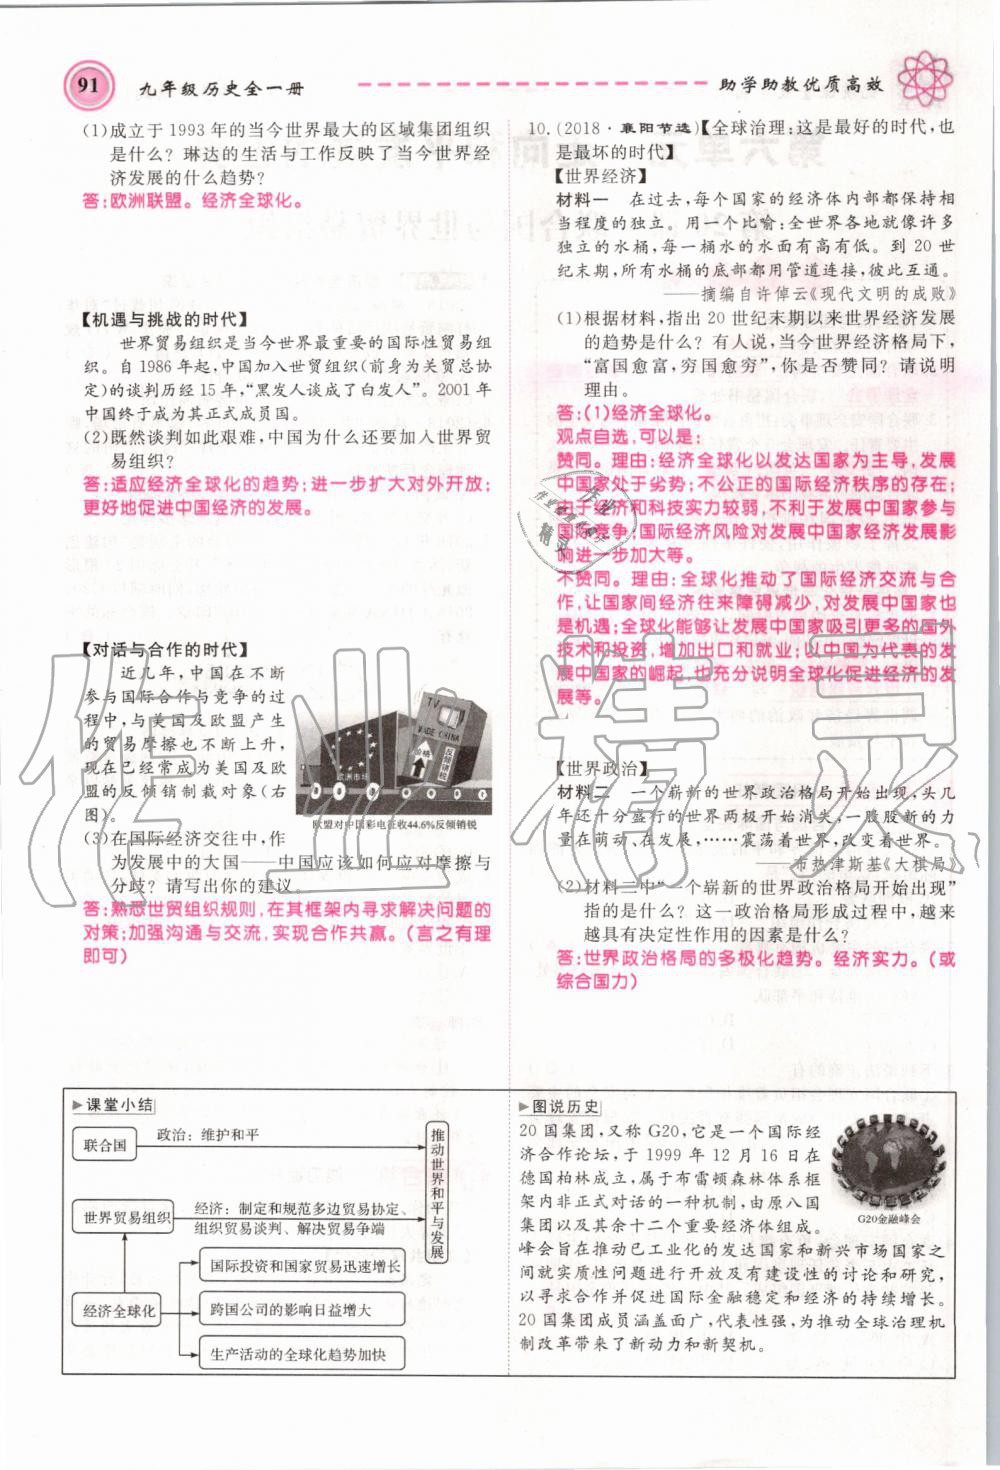 91
九年级历史全一册
助学助教优质高效
(1)成立于 1993 年的当今世界最大的区域集团组织
是什么？琳达的生活与工作反映了当今世界经
济发展的什么趋势？
答:欧洲联盟。经济全球化。
【机遇与挑战的时代】
世界贸易组织是当今世界最重要的国际性贸易组
织。自 1986 年起,中国加入世贸组织(前身为关贸总协
定)的谈判历经 15 年,“黑发人谈成了白发人”。2001 年
中国终于成为其正式成员国。
(2)既然谈判如此艰难,中国为什么还要加入世界贸
易组织？
答:适应经济全球化的趋势;进一步扩大对外开放;
更好地促进中国经济的发展。
【对话与合作的时代】
近几年,中国在不断
参与国际合作与竞争的过
程中,与美国及欧盟产生
的贸易摩擦也不断上升,
现在已经常成为美国及欧
盟的反倾销制裁对象(右
图)。
TV
MADE CHINA
价格
反倾销税
欧洲市场
欧盟对中国彩电征收44.6%反倾销税
(3)在国际经济交往中,作
为发展中的大国——中国应该如何应对摩擦与
分歧？请写出你的建议。
答:熟悉世贸组织规则,在其框架内寻求解决问题的
对策;加强沟通与交流,实现合作共赢。(言之有理
即可)
10. (2018·襄阳节选)【全球治理:这是最好的时代,也
是最坏的时代】
【世界经济】
材料一 在过去,每个国家的经济体内部都保持相
当程度的独立。用一个比喻:全世界各地就像许多
独立的水桶,每一桶水的水面有高有低。到 20 世
纪末期,所有水桶的底部都用管道连接,彼此互通。
——摘编自许倬云《现代文明的成败》
(1)根据材料,指出 20 世纪末期以来世界经济发展
的趋势是什么？有人说,当今世界经济格局下,
“富国愈富,穷国愈穷”,你是否赞同？请说明
理由。
答:(1)经济全球化。
观点自选,可以是:
赞同。理由:经济全球化以发达国家为主导,发展
中国家处于劣势;不公正的国际经济秩序的存在;
由于经济和科技实力较弱,不利于发展中国家参与
国际竞争;国际经济风险对发展中国家经济发展影
响进一步加大等。
不赞同。理由:全球化推动了国际经济交流与合
作,让国家间经济往来障碍减少,对发展中国家也
是机遇;全球化能够让发展中国家吸引更多的国外
技术和投资,增加出口和就业;以中国为代表的发
展中国家的崛起,也充分说明全球化促进经济的发
展等。
【世界政治】
材料二 一个崭新的世界政治格局开始出现,头几
年还十分盛行的世界两极开始消失,一股股新的力
量在萌动、在发展,……震荡着世界,改变着世界。
——布热津斯基《大棋局》
(2)材料二中“一个崭新的世界政治格局开始出现”
指的是什么？这一政治格局形成过程中,越来
越具有决定性作用的因素是什么？
答:世界政治格局的多极化趋势。经济实力。(或
综合国力)
作业精灵
课堂小结
联合国
政治：维护和平
世界贸易组织
经济：制定和规范多边贸易协定、
组织贸易谈判、解决贸易争端
推动世界和平与发展
经济全球化
国际投资和国家贸易迅速增长
跨国公司的影响日益增大
生产活动的全球化趋势加快
图说历史
20 国集团,又称 G20,它是一个国际经
济合作论坛,于 1999 年 12 月 16 日在
德国柏林成立,属于布雷顿森林体系框
架内非正式对话的一种机制,由原八国
集团以及其余十二个重要经济体组成。
G20金融峰会
峰会旨在推动已工业化的发达国家和新兴市场国家之
间就实质性问题进行开放及有建设性的讨论和研究,
以寻求合作并促进国际金融稳定和经济的持续增长。
20 国集团成员涵盖面广,代表性强,为推动全球治理机
制改革带来了新动力和新契机。